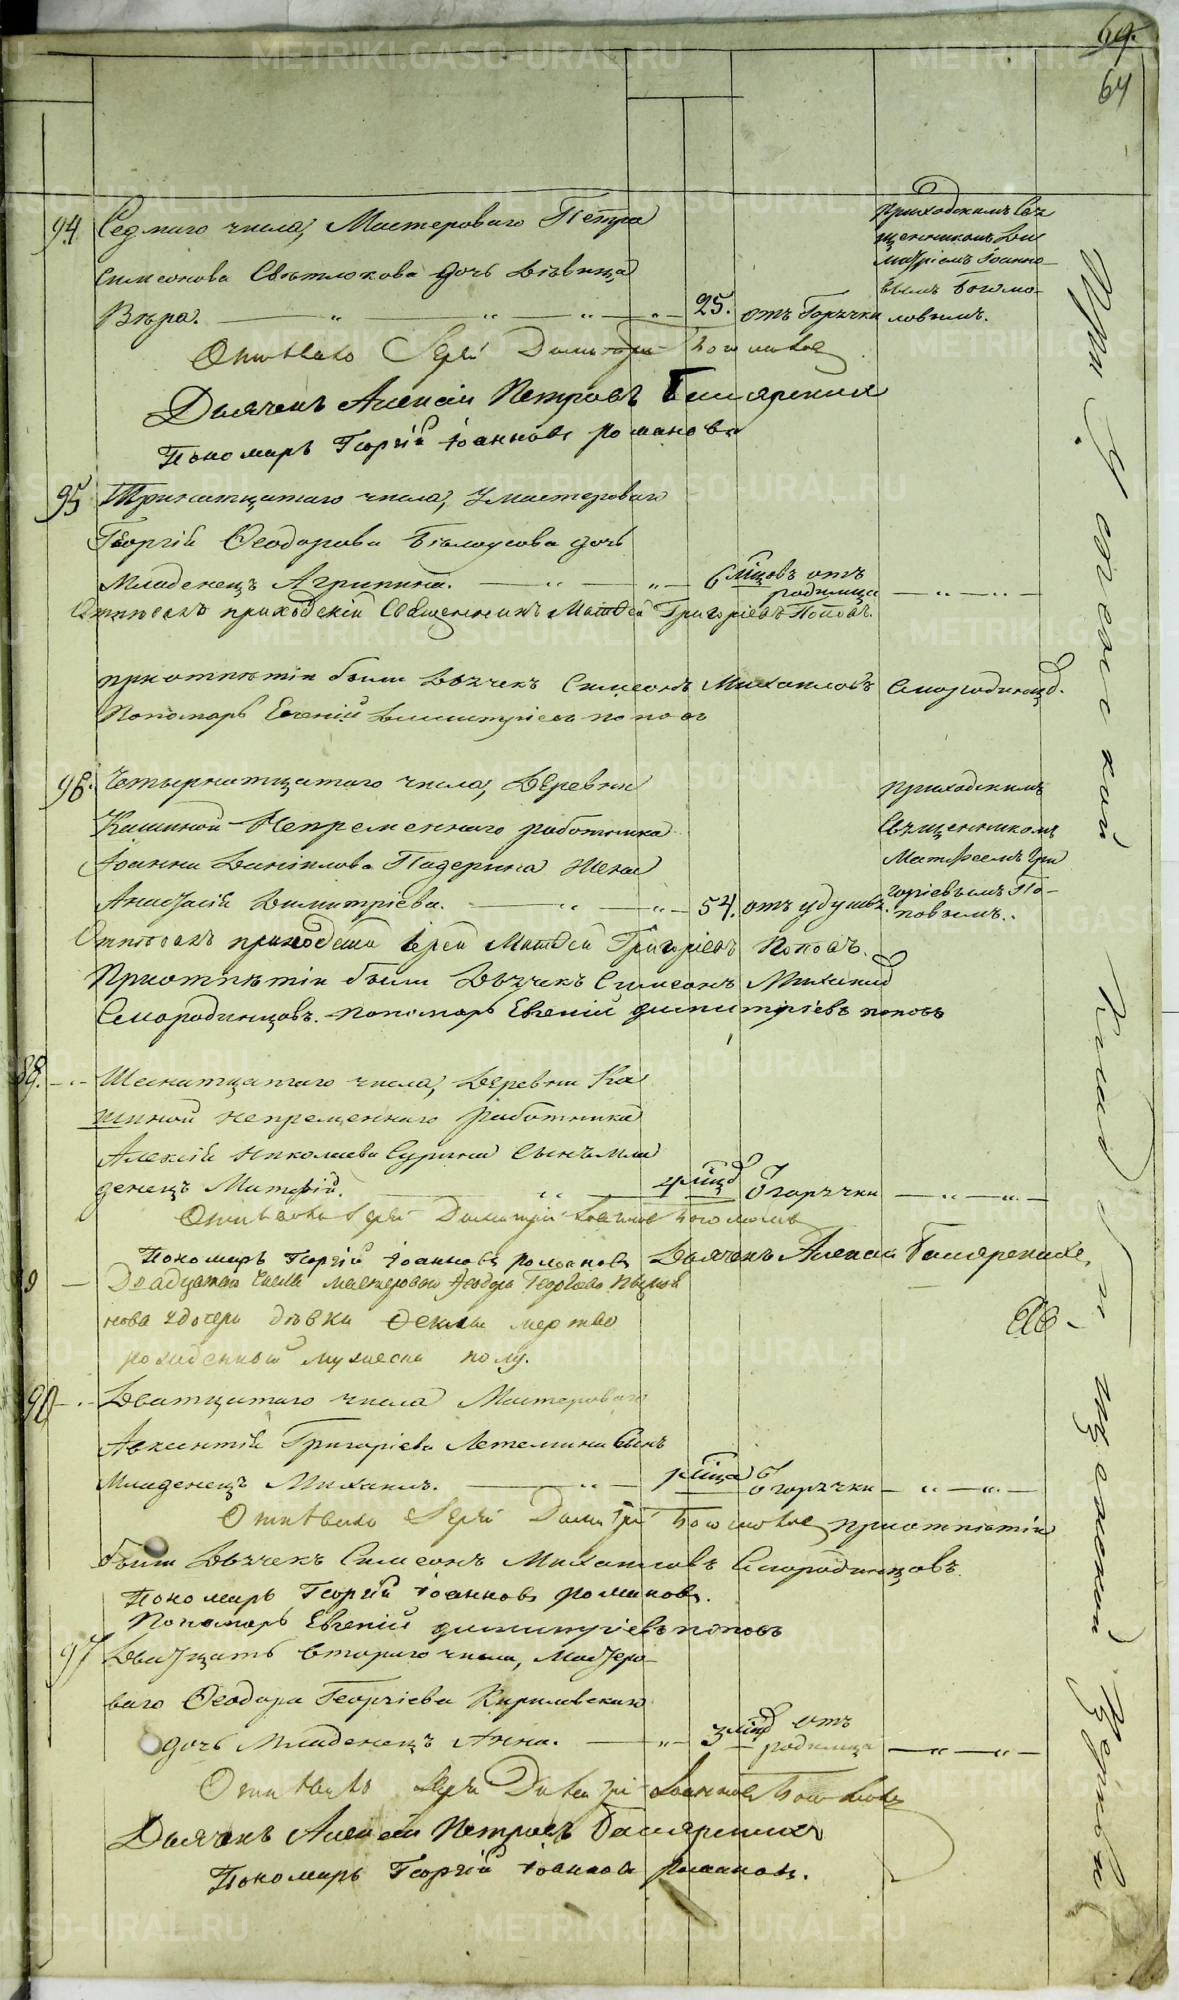 69.
64
94. Седмаго числа, Мастероваго Петра
Симеонова Светлокова дочь девица
Вѣра. 25. отъ Горячки
приходскимъ Свя
щенникомъ Ди
митріемъ Іоанно-
вымъ Богомо-
ловымъ.
Отпѣвалъ Іерей Димитрій Богомоловъ
Дьячекъ Алексій Петровъ Башарскихъ
Пономарь Георгій Іоанновъ романовъ
95 Тринатцатаго числа, у мастероваго
Георгій Ѳеодорова Бѣлоусова дочь
Младенецъ Агрипина. 6 мѣцовъ отъ
родимца
Отпѣвалъ приходскій Священникъ Матѳей Григорьевъ Поповъ.
при отпѣтіи были Дьячекъ Симеонъ Михаиловъ Смородинцовъ.
Пономарь Евгеній Димитріевъ поповъ
96. Четырнатцатаго числа, Деревни
Кашиной Непременнаго работника
Іоанна Даніилова Падерина жена
Анастасія Димитріева. 54. отъ удушья.
приходскимъ
Священникомъ
Матфеемъ Гри
горіевымъ По-
повымъ.
Отпѣвалъ приходскій Іерей Матѳей Григоріевъ Поповъ.
При отпѣтіи были Дьячекъ Симеонъ Михаиловъ
Смородинцовъ. Пономарь Евгеній димитріевъ поповъ
88. Шеснатцатаго числа, Деревни Ка
шиной непременнаго работника
Алексій Николаева Сурина сынъ мла
денецъ Матфій. 4 мѣц. о горячки
Отпѣвалъ Іерей Димитрій Іоанновъ Богомоловъ
Пономарь Георгій Іоанновъ романовъ Дьячекъ Алексій Башарскихъ
Двадцатаго числа мастероваго Ѳеодора Георгіева
нова у дочери дѣвки Ѳеклы мертво
рожденный мужеска полу.
90 Дватцатаго числа Мастероваго
Авксентій Григоріева Летемина сынъ
Младенецъ Михаилъ. мѣсца о горячки
Отпѣвалъ Іерей Димитрій Богомоловъ при отпѣтіи
были Дьячекъ Симеонъ Михаиловъ Смородинцовъ.
Пономарь Георгій Іоанновъ романовъ.
Пономарь Евгеній димитріевъ поповъ
97 Двадцать втораго числа, Мастеро-
ваго Ѳеодора Георгіева Кириловскаго
дочь Младенецъ Анна. 3 мѣц отъ
родимца
Отпѣвалъ Іерей Димитрій Іоанновъ Богомоловъ
Дьячекъ Алексій Петровъ Башарскихъ
Пономарь Георгій Іоанновъ романовъ.
METRIKI.GASO-URAL.RU